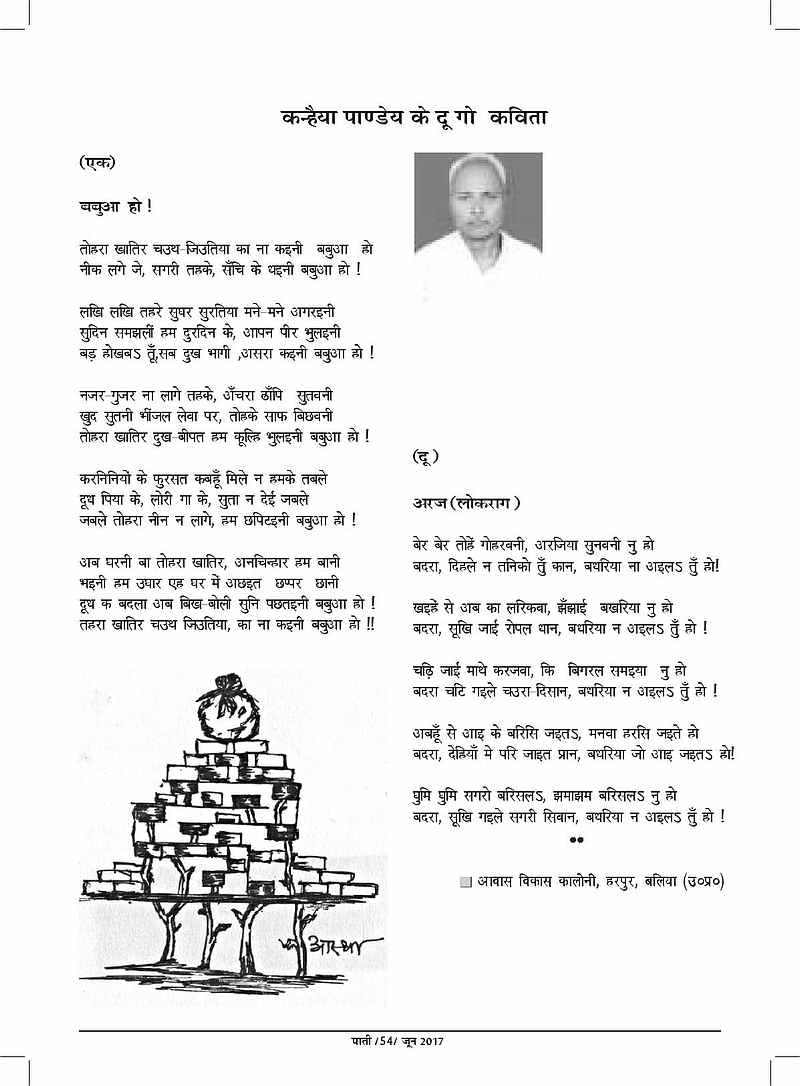 कन्हैया पाण्डेय के दू गो कविता
(एक)
बबुआ हो !
तोहरा खातिर चउथ-जिउतिया का ना कइनी बबुआ हो
नीक लगे जे, सगरी तहके, सँचि के धइनी बबुआ हो !
लखि लखि तहरे सुघर सुरतिया मने-मने अगरइनी
सुदिन समझलीं हम दुरदिन के, आपन पीर भुलइनी
बड़ होखबऽ तूँ,सब दुख भागी ,असरा कइनी बबुआ हो !
नजर-गुजर ना लागे तहके, अँचरा ढाँपि सुतवनी
खुद सुतनी भींजल लेवा पर, तोहके साफ बिछवनी
तोहरा खातिर दुख-बीपत हम कूल्हि भुलइनी बबुआ हो !
करनिनियों के फुरसत कबहूँ मिले न हमके तबले
दूध पिया के, लोरी गा के, सुता न देईं जबले
जबले तोहरा नीन न लागे, हम छपिटइनी बबुआ हो !
अब घरनी बा तोहरा खातिर, अनचिन्हार हम बानी
भइनी हम उघार एह घर में अछइत छप्पर छानी
दूध क बदला अब बिख-बोली सुनि पछतइनी बबुआ हो !
तहरा खातिर चउथ जिउतिया, का ना कइनी बबुआ हो !!
आस्था
(दू)
अरज(लोकराग)
बेर बेर तोहें गोहरवनी, अरजिया सुनवनी नु हो
बदरा, दिहले न तनिको तुँ कान, बधरिया ना अइलऽ तुँ हो!
खइहें से अब का लरिकवा, झँझाई बखरिया नु हो
बदरा, सूखि जाई रोपल धान, बधरिया न अइलऽ तुँ हो !
चढ़ि जाई माथे करजवा, कि बिगरल समइया नु हो
बदरा चटि गइले चउरा-दिसान, बधरिया न अइलऽ तुँ हो !
अबहूँ से आइ के बरिसि जइतऽ, मनवा हरसि जइते हो
बदरा, देहियाँ मे परि जाइत प्रान, बधरिया जो आइ जइतऽ हो!
घुमि घुमि सगरो बरिसलऽ, झमाझम बरिसलऽ नु हो
बदरा, सूखि गइले सगरी सिवान, बधरिया न अइलऽ तुँ हो !
आवास विकास कालोनी, हरपुर, बलिया (उ०प्र०)
पाती /54/ जून 2017